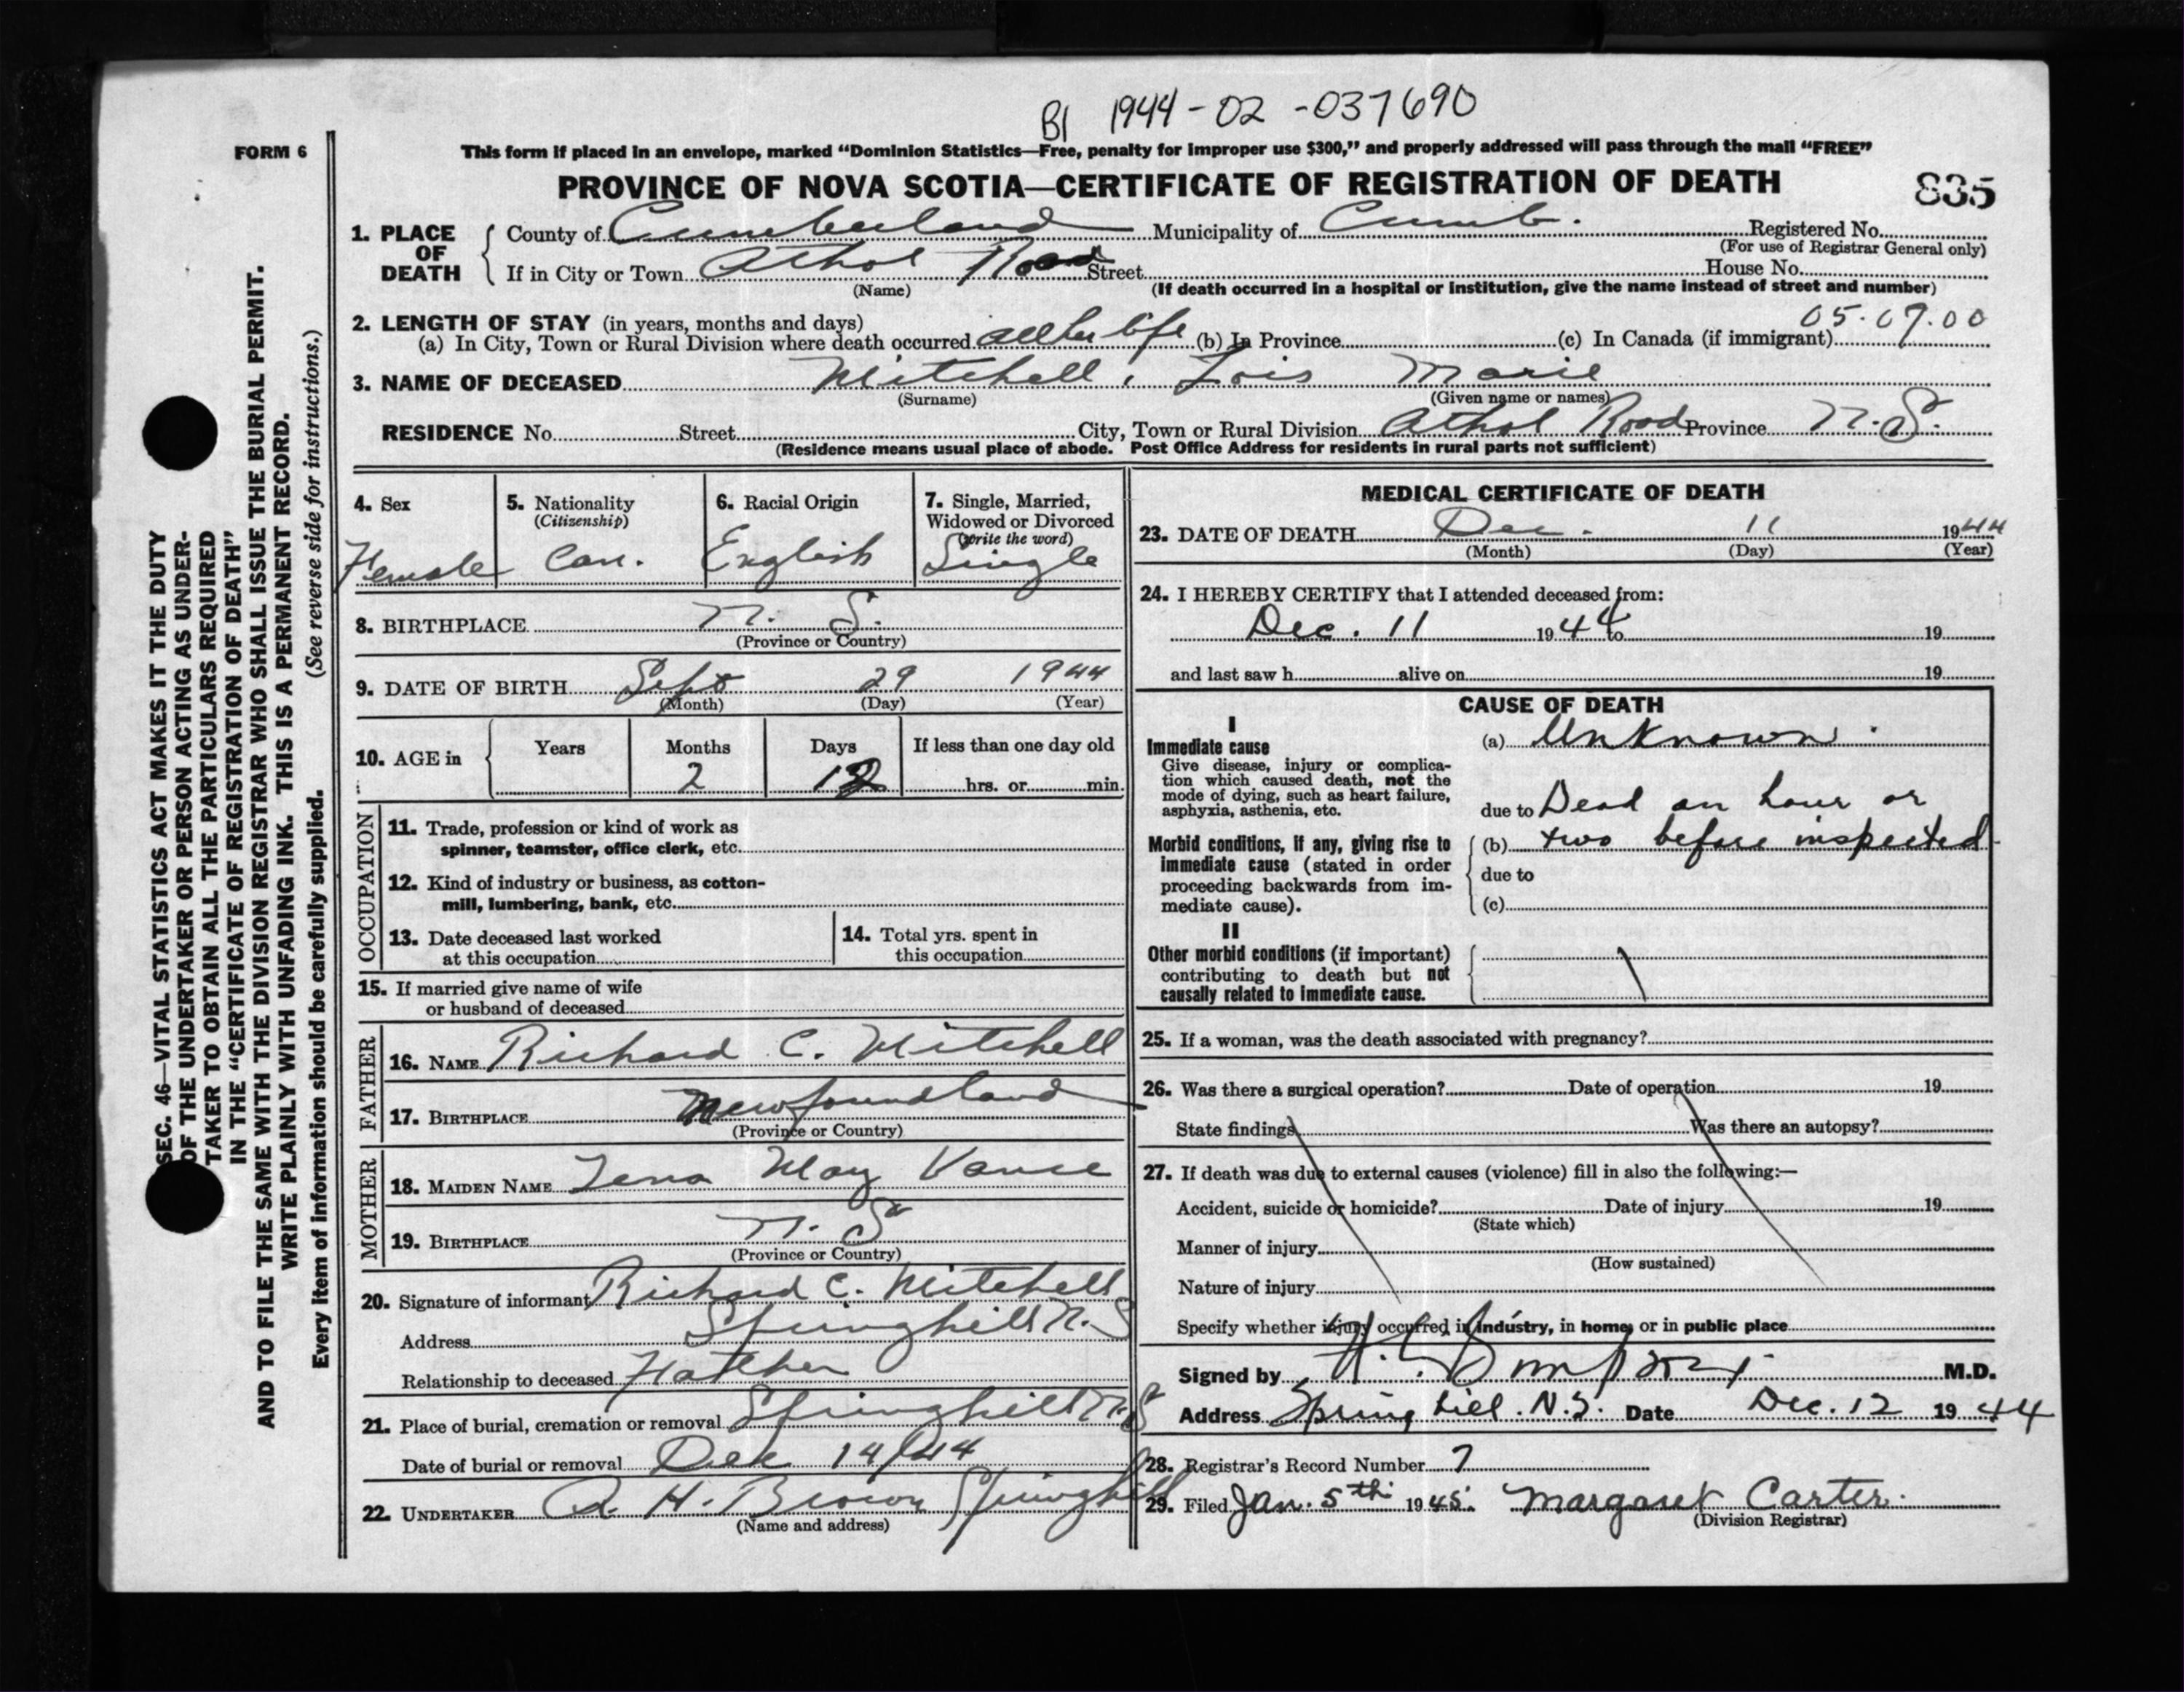 B1 1944-02-037690
FORM 6
This form if placed in an envelope, marked “Dominion Statistics—Free, penalty for improper use $300,” and properly addressed will pass through the mail “FREE”
PROVINCE OF NOVA SCOTIA—CERTIFICATE OF REGISTRATION OF DEATH
835
1. PLACE OF DEATH
County of Cumberland Municipality of Cumb. Registered No.
(For use of Registrar General only)
If in City or Town Athol Road Street House No.
(Name) (If death occurred in a hospital or institution, give the name instead of street and number)
05.09.00
2. LENGTH OF STAY (in years, months and days)
(a) In City, Town or Rural Division where death occurred all her life (b) In Province (c) In Canada (if immigrant)
3. NAME OF DECEASED Mitchell, Lois Marie
(Surname) (Given name or names)
RESIDENCE No. Street City, Town or Rural Division Athol Road Province N.S.
(Residence means usual place of abode. Post Office Address for residents in rural parts not sufficient)
4. Sex
Female
5. Nationality
(Citizenship)
Can.
6. Racial Origin
English
7. Single, Married,
Widowed or Divorced
(write the word)
Single
8. BIRTHPLACE N. S.
(Province or Country)
9. DATE OF BIRTH Sept 29 1944
(Month) (Day) (Year)
10. AGE in Years Months Days If less than one day old
2 12 hrs. or min.
OCCUPATION
11. Trade, profession or kind of work as
spinner, teamster, office clerk, etc.
12. Kind of industry or business, as cotton-
mill, lumbering, bank, etc.
13. Date deceased last worked
at this occupation
14. Total yrs. spent in
this occupation
15. If married give name of wife
or husband of deceased
FATHER
16. NAME Richard C. Mitchell
17. BIRTHPLACE Newfoundland
(Province or Country)
MOTHER
18. MAIDEN NAME Lena May Vance
19. BIRTHPLACE N. S
(Province or Country)
20. Signature of informant Richard C. Mitchell
Address Springhill N. S
Relationship to deceased Father
21. Place of burial, cremation or removal Springhill N.S
Date of burial or removal Dec 14/44
22. UNDERTAKER A. H. Brown Springhill
(Name and address)
MEDICAL CERTIFICATE OF DEATH
23. DATE OF DEATH Dec. 11 1944
(Month) (Day) (Year)
24. I HEREBY CERTIFY that I attended deceased from:
Dec. 11 1944 to 19
and last saw h alive on 19
CAUSE OF DEATH
I
Immediate cause
Give disease, injury or complica-
tion which caused death, not the
mode of dying, such as heart failure,
asphyxia, asthenia, etc.
(a) Unknown.
due to Dead an hour or
Morbid conditions, if any, giving rise to
immediate cause (stated in order
proceeding backwards from im-
mediate cause).
(b) two before inspected
due to
(c)
II
Other morbid conditions (if important)
contributing to death but not
causally related to immediate cause.
25. If a woman, was the death associated with pregnancy?
26. Was there a surgical operation? Date of operation 19
State findings Was there an autopsy?
27. If death was due to external causes (violence) fill in also the following:—
Accident, suicide or homicide? Date of injury 19
(State which)
Manner of injury
(How sustained)
Nature of injury
Specify whether injury occurred in industry, in home, or in public place
Signed by M.D.
Address Springhill. N.S. Date Dec. 12 1944
28. Registrar's Record Number 7
29. Filed Jan. 5th 1945. Margaret Carter.
(Division Registrar)
SEC. 46—VITAL STATISTICS ACT MAKES IT THE DUTY
OF THE UNDERTAKER OR PERSON ACTING AS UNDER-
TAKER TO OBTAIN ALL THE PARTICULARS REQUIRED
IN THE “CERTIFICATE OF REGISTRATION OF DEATH”
AND TO FILE THE SAME WITH THE DIVISION REGISTRAR WHO SHALL ISSUE THE BURIAL PERMIT.
WRITE PLAINLY WITH UNFADING INK. THIS IS A PERMANENT RECORD.
Every item of information should be carefully supplied. (See reverse side for instructions.)